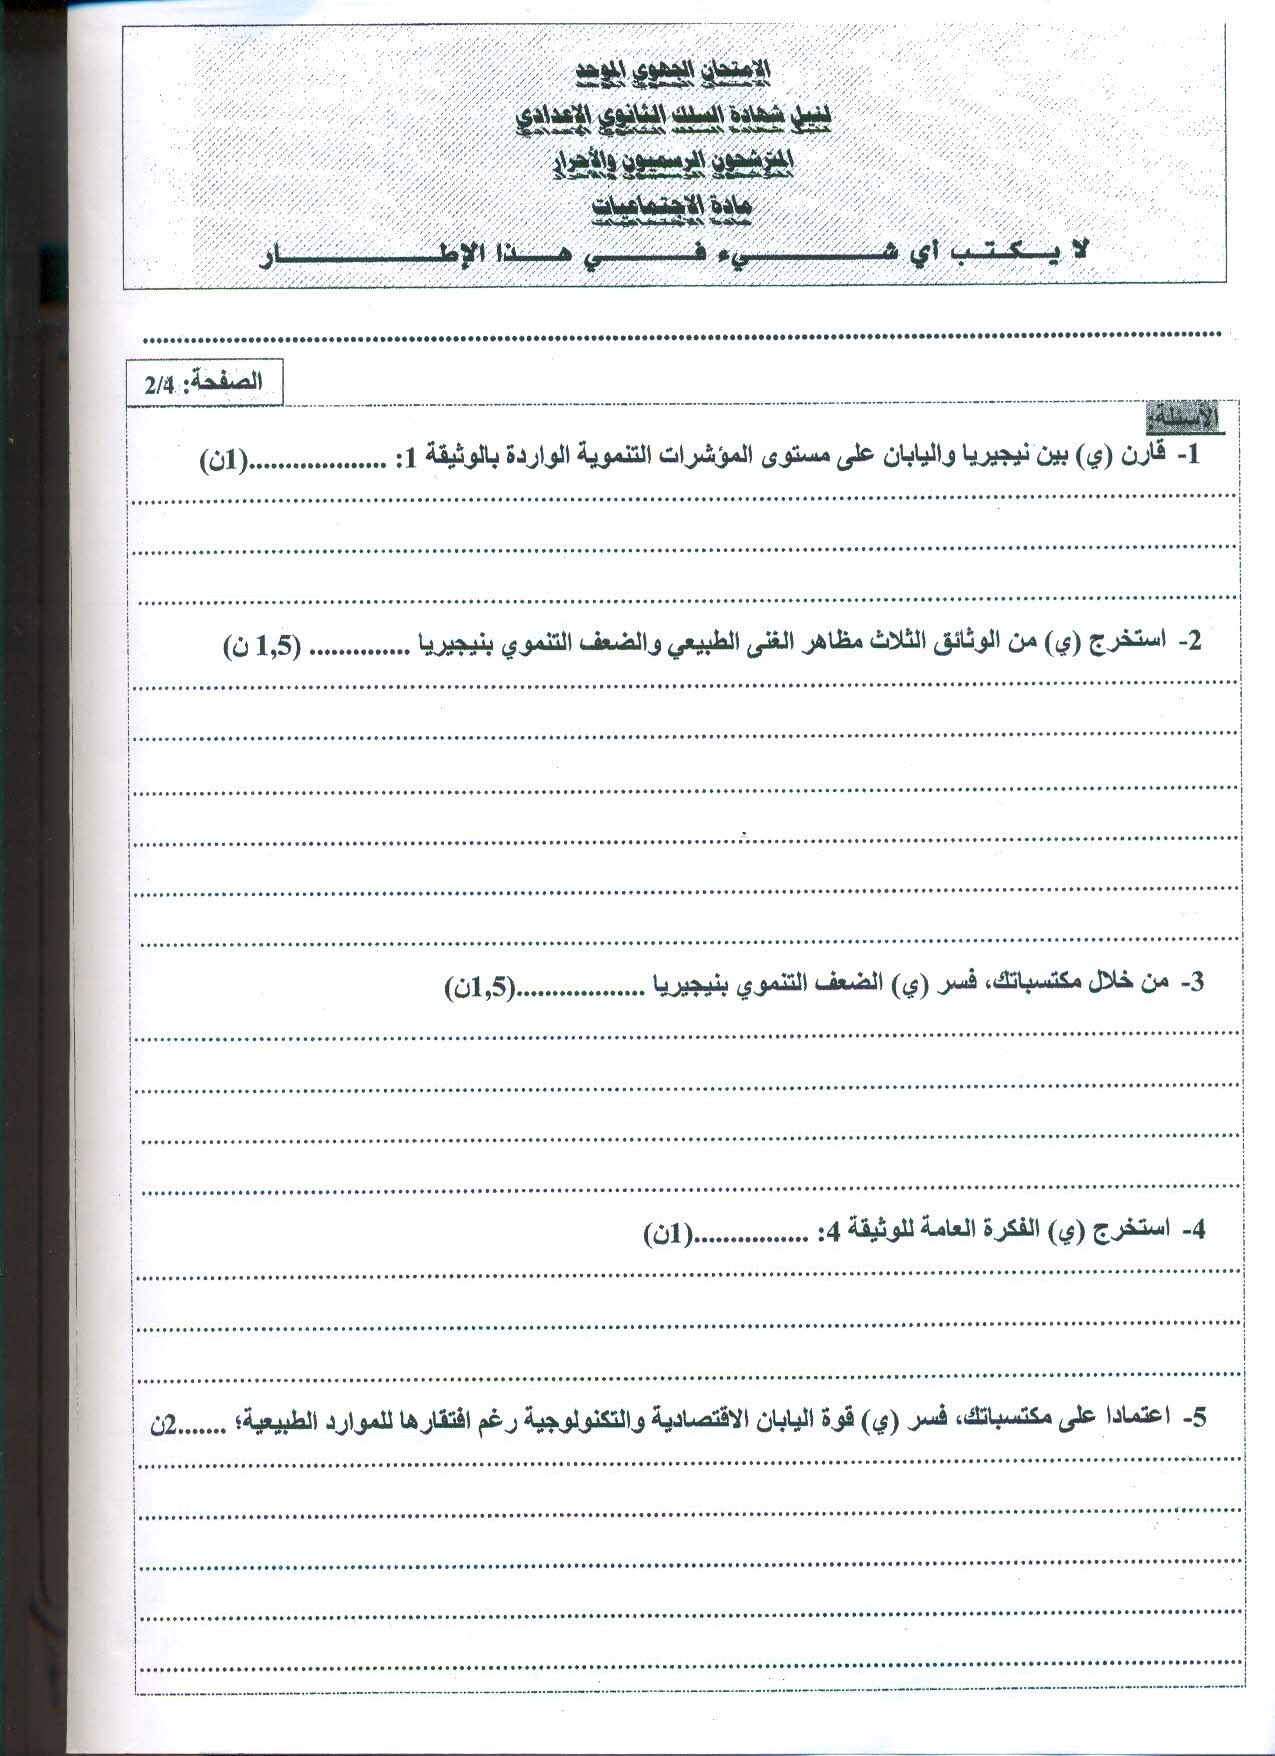 الامتحان الجهوي الموحد
لنيل شهادة السلك الثانوي الاعدادي
المترشحون الرسميون والأحرار
مادة الاجتماعيات
لا يكتب أي شيء في هذا الإطار
الصفحة: 2/4
الأسئلة:
1- قارن (ي) بين نيجيريا واليابان على مستوى المؤشرات التنموية الواردة بالوثيقة 1: ...................(1ن)
2- استخرج (ي) من الوثائق الثلاث مظاهر الغنى الطبيعي والضعف التنموي بنيجيريا .............. (1,5 ن)
3- من خلال مكتسباتك، فسر (ي) الضعف التنموي بنيجيريا ..................(1,5ن)
4- استخرج (ي) الفكرة العامة للوثيقة 4: ................(1ن)
5- اعتمادا على مكتسباتك، فسر (ي) قوة اليابان الاقتصادية والتكنولوجية رغم افتقارها للموارد الطبيعية؛ .......2ن